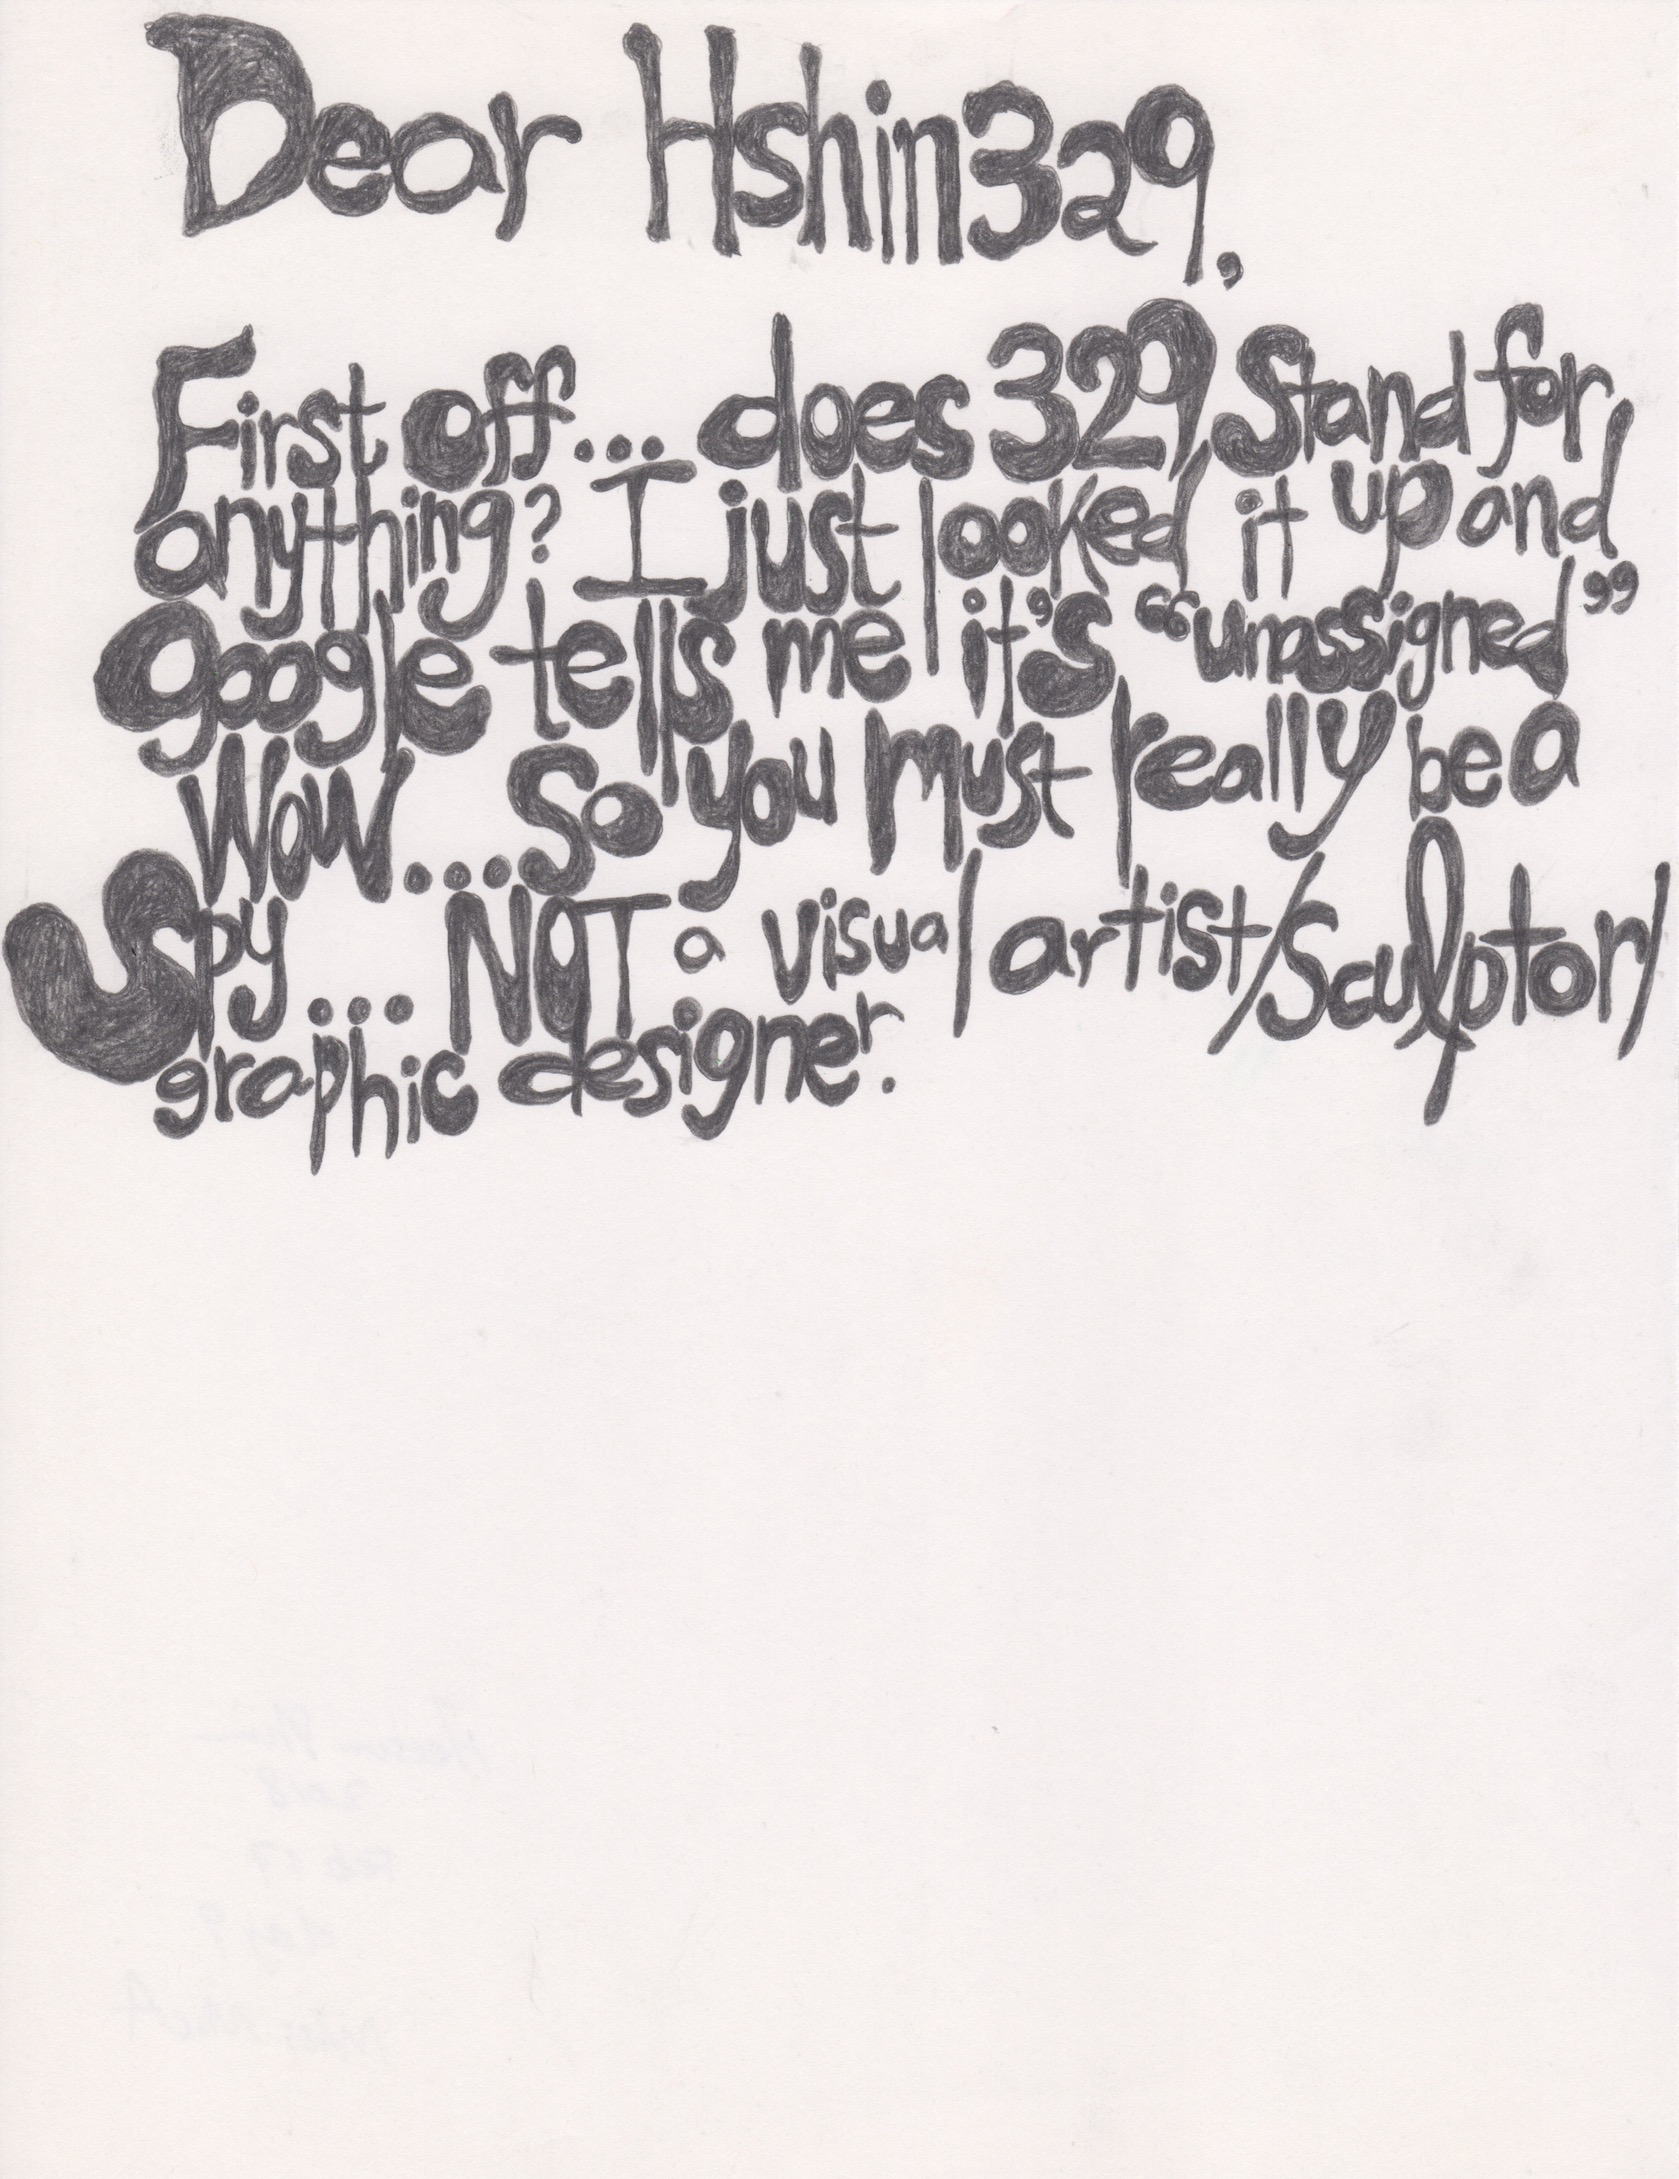 Dear Hshin329,
First off... does 329 Stand for
anything? I just looked it up and
Google tells me it's "unassigned"
Wow... So you must really be a
Spy... NOT a visual artist/sculptor/
graphic designer.